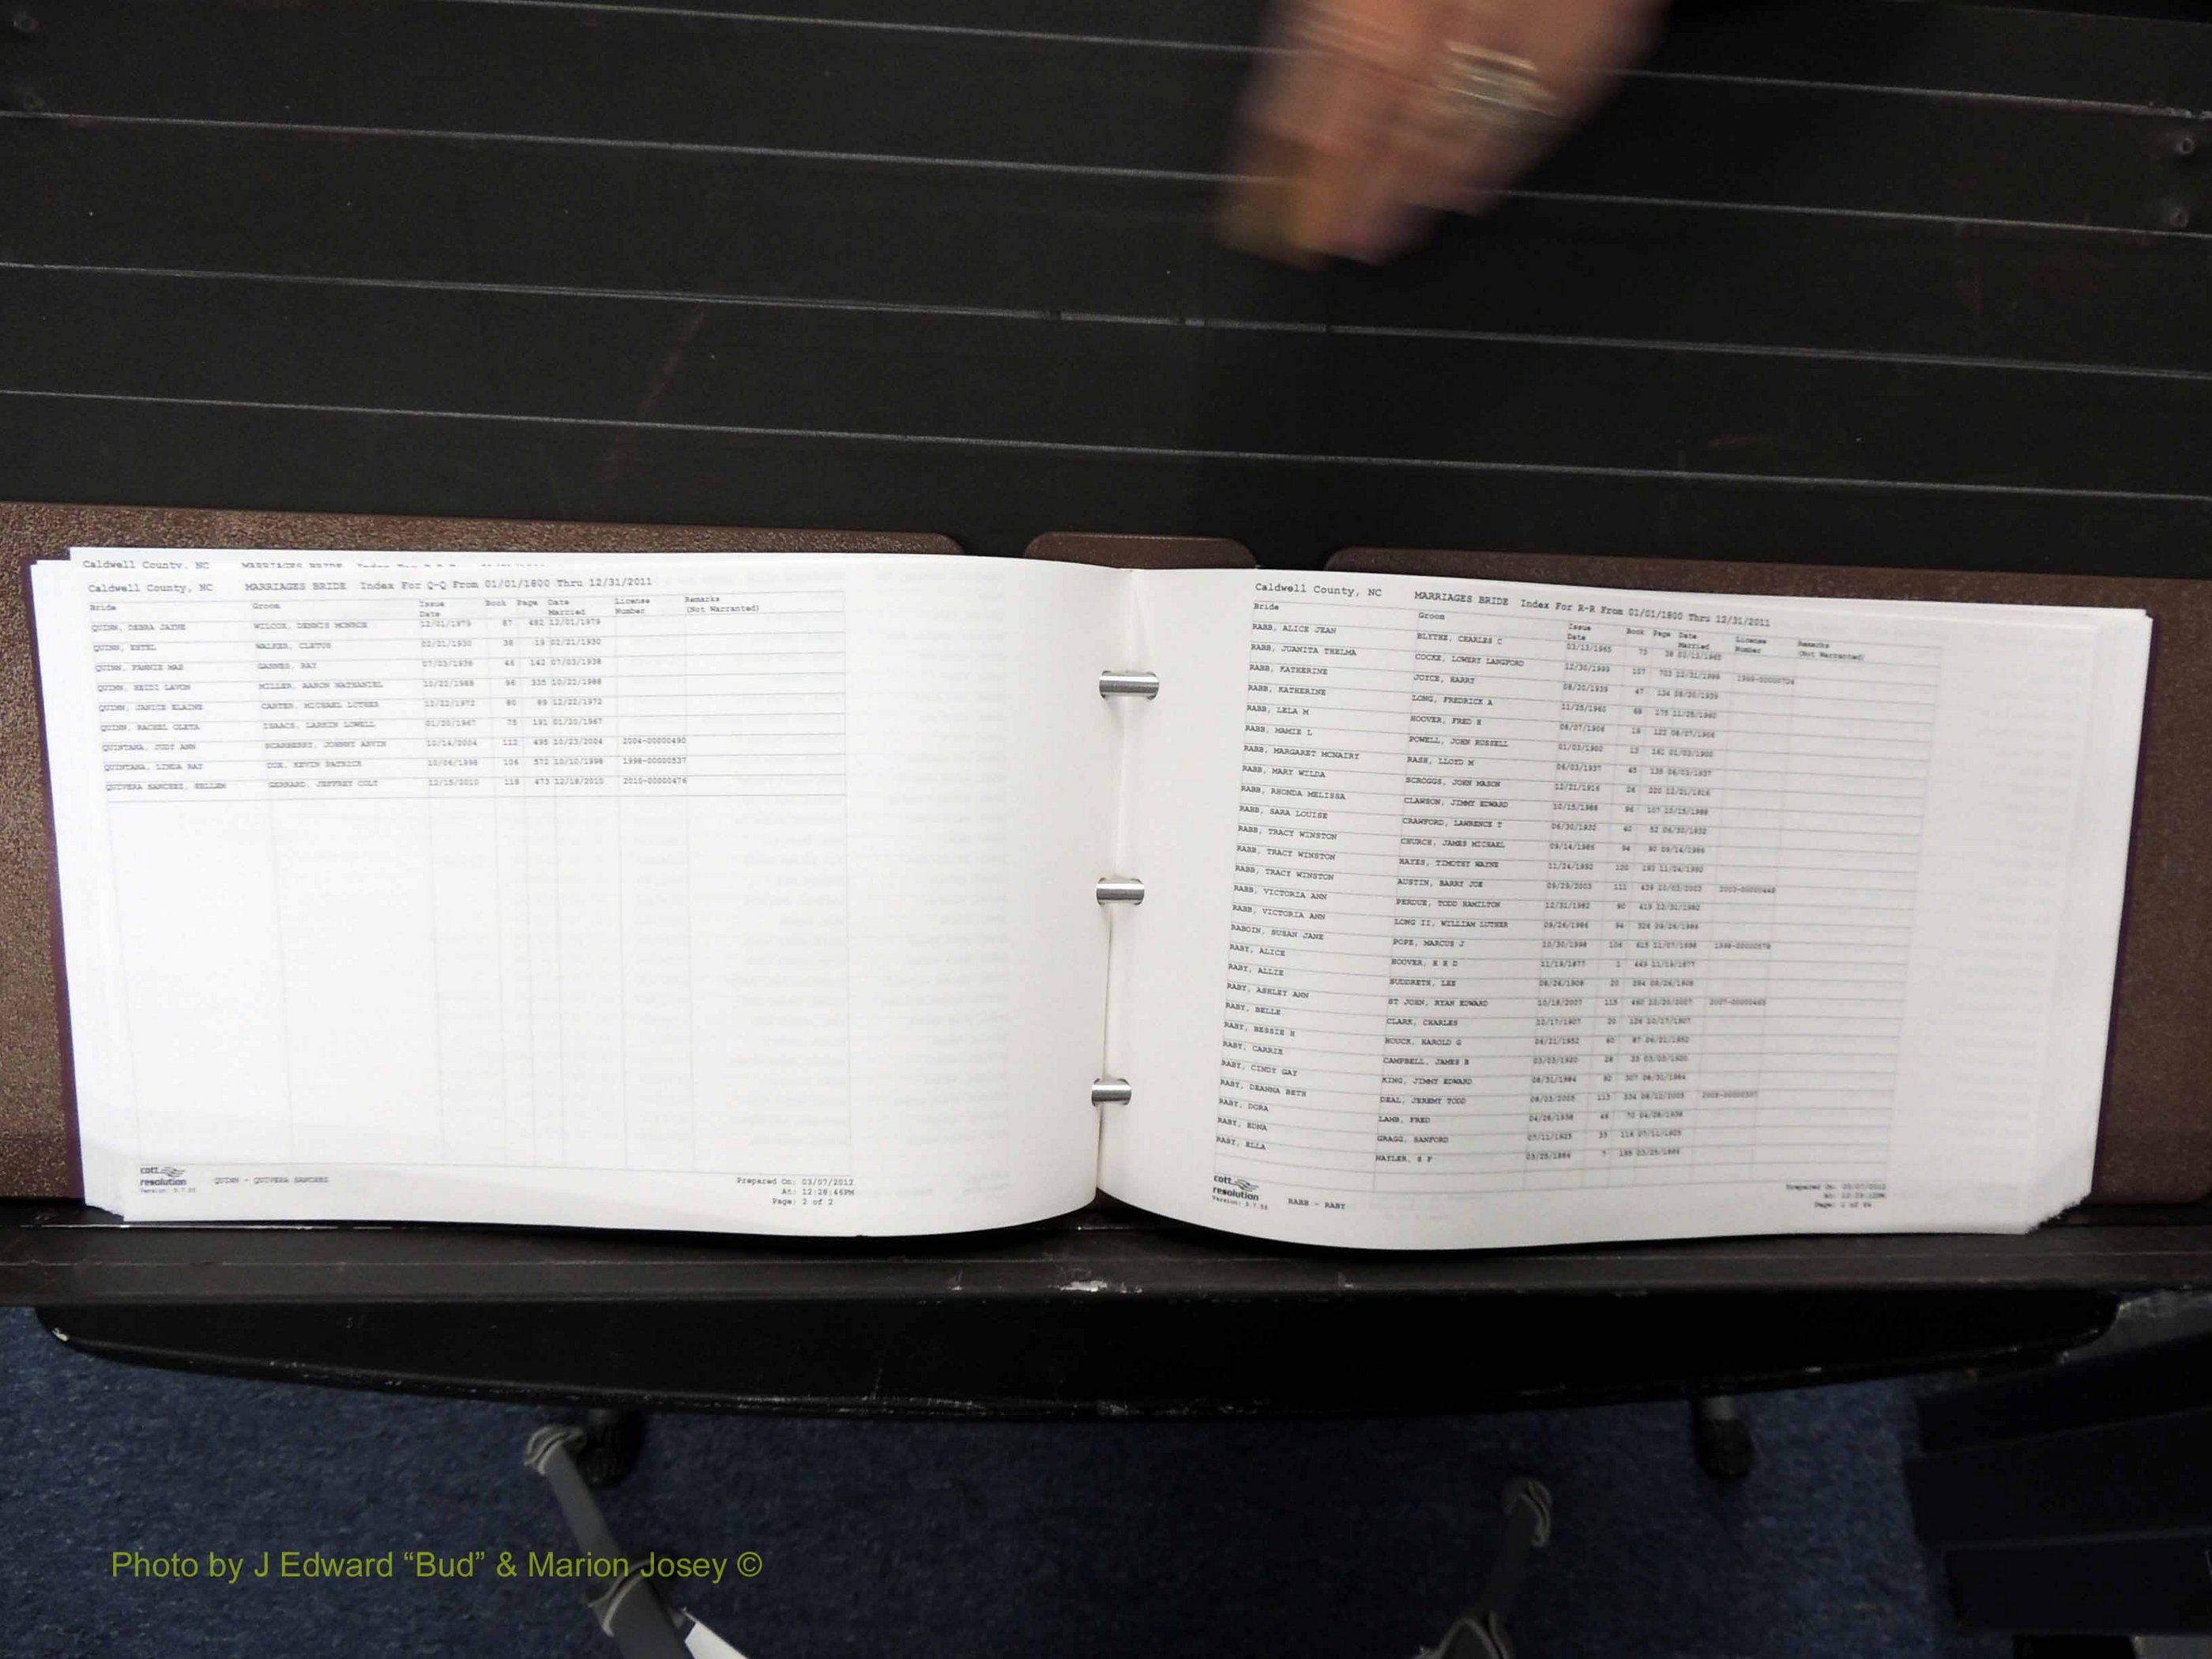 Caldwell County, NC
Caldwell County, NC MARRIAGES BRIDE Index For Q-Q From 01/01/1800 Thru 12/31/2011
Bride Groom Issue Date Book Page Date Married License Number Remarks (Not Warranted)
QUINN, DEBRA JAYNE WILCOX, DENNIS MONROE 12/01/1979 87 482 12/01/1979
QUINN, ESTEL WALKER, CLETUS 02/21/1930 38 19 02/21/1930
QUINN, FANNIE MAE GARNES, RAY 07/03/1938 46 142 07/03/1938
QUINN, HEIDI LAVON MILLER, AARON NATHANIEL 10/22/1988 96 325 10/22/1988
QUINN, JANICE ELAINE CARTER, MICHAEL LUTHER 12/22/1972 80 89 12/22/1972
QUINN, RACHEL OLETA ISAACS, LARKIN LOWELL 01/20/1967 75 191 01/20/1967
QUINTANA, JUDI ANN SCARBERRY, JOHNNY ARVIN 10/14/2004 112 495 10/23/2004 2004-00000490
QUINTANA, LINDA RAY COX, KEVIN PATRICK 10/06/1998 106 572 10/10/1998 1998-00000537
QUIVERA SANCHEZ, HELLEN GERRARD, JEFFREY COLT 12/15/2010 118 473 12/18/2010 2010-00000476
cott
resolution
QUINN - QUIVERA SANCHEZ
Prepared On: 03/07/2012
At: 12:28:46PM
Page: 2 of 2
Caldwell County, NC MARRIAGES BRIDE Index For R-R From 01/01/1800 Thru 12/31/2011
Bride Groom Issue Date Book Page Date Married License Number Remarks (Not Warranted)
RABB, ALICE JEAN BLYTHE, CHARLES C 03/13/1965 73 38 03/13/1965
RABB, JUANITA THELMA COCKE, LOWERY LANGFORD 12/30/1999 107 703 12/31/1999 1999-00000704
RABB, KATHERINE JOYCE, HARRY 08/20/1939 47 134 08/20/1939
RABB, KATHERINE LONG, FREDRICK A 11/25/1960 68 175 11/25/1960
RABB, LELA M HOOVER, FRED H 08/07/1906 19 122 08/07/1906
RABB, MAMIE L POWELL, JOHN RUSSELL 01/03/1900 13 161 01/03/1900
RABB, MARGARET MCNAIRY RASH, LLOYD M 06/03/1937 45 138 06/03/1937
RABB, MARY WILDA SCROGGS, JOHN MASON 12/21/1916 26 220 12/21/1916
RABB, RHONDA MELISSA CLAWSON, JIMMY EDWARD 10/15/1988 96 107 10/15/1988
RABB, SARA LOUISE CRAWFORD, LAWRENCE T 06/30/1932 40 52 06/30/1932
RABB, TRACY WINSTON CHURCH, JAMES MICHAEL 09/14/1986 94 90 09/14/1986
RABB, TRACY WINSTON HAYES, TIMOTHY WAYNE 11/24/1992 100 183 11/24/1992
RABB, TRACY WINSTON AUSTIN, BARRY JOE 09/29/2003 111 439 10/03/2003
RABB, VICTORIA ANN PERDUE, TODD HAMILTON 12/31/1982 90 413 12/31/1982
RABB, VICTORIA ANN LONG II, WILLIAM LUTHER 09/26/1986 94 326 09/26/1986
RABOIN, SUSAN JANE POPE, MARCUS J 10/30/1998 106 615 11/07/1998 1998-00000578
RABY, ALICE HOOVER, H H D 11/19/1877 1 449 11/19/1877
RABY, ALLIE SUDDRETH, LEE 08/26/1908 20 284 08/26/1908
RABY, ASHLEY ANN ST JOHN, RYAN EDWARD 10/18/2007 115 460 10/20/2007
RABY, BELLE CLARK, CHARLES 12/17/1907 20 126 12/17/1907
RABY, BESSIE H HOUCK, HAROLD G 06/21/1952 60 87 06/21/1952
RABY, CARRIE CAMPBELL, JAMES B 03/03/1920 28 33 03/03/1920
RABY, CINDY GAY KING, JIMMY EDWARD 08/31/1984 92 307 08/31/1984
RABY, DEANNA BETH DEAL, JEREMY TODD 08/03/2005 113 334 08/12/2005
RABY, DORA LAMB, FRED 04/26/1938 46 70 04/26/1938
RABY, EDNA GRAGG, SANFORD 07/11/1925 33 116 07/11/1925
RABY, ELLA HAYLER, S F 03/25/1884 7 195 03/25/1884
cott
resolution
RABB - RABY
Prepared On: 03/07/2012
Photo by J Edward “Bud” & Marion Josey ©